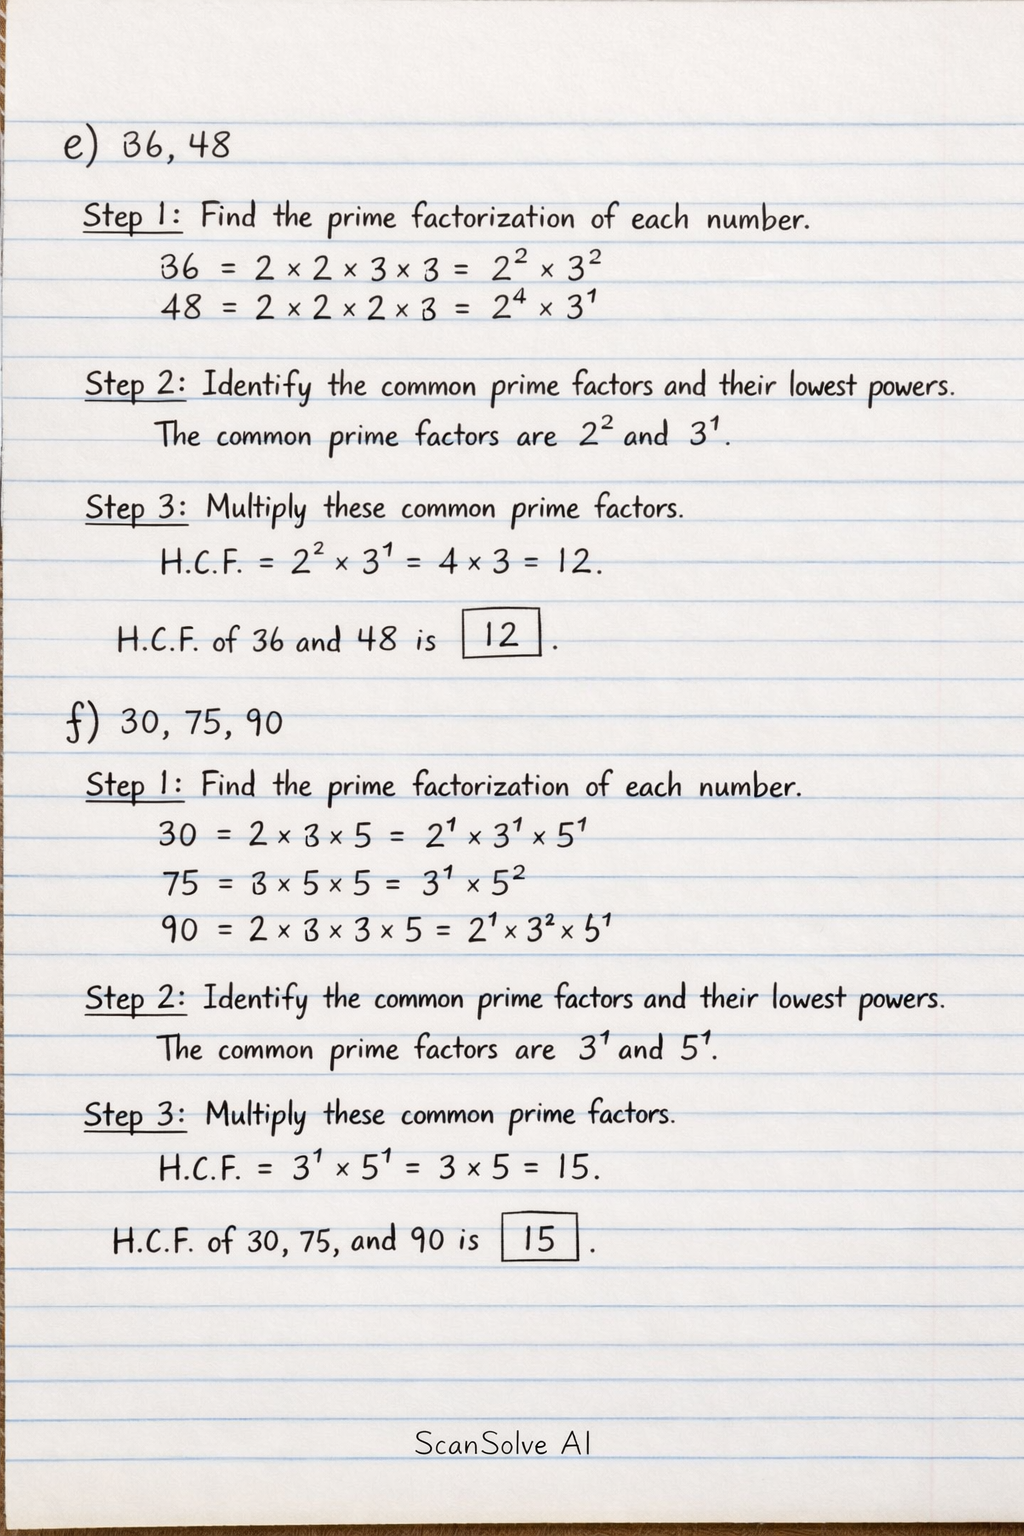 e) 36, 48
Step 1: Find the prime factorization of each number.
36 = 2 × 2 × 3 × 3 = 2² × 3²
48 = 2 × 2 × 2 × 3 = 2⁴ × 3¹
Step 2: Identify the common prime factors and their lowest powers.
The common prime factors are 2² and 3¹.
Step 3: Multiply these common prime factors.
H.C.F. = 2² × 3¹ = 4 × 3 = 12.
H.C.F. of 36 and 48 is 12.
f) 30, 75, 90
Step 1: Find the prime factorization of each number.
30 = 2 × 3 × 5 = 2¹ × 3¹ × 5¹
75 = 3 × 5 × 5 = 3¹ × 5²
90 = 2 × 3 × 3 × 5 = 2¹ × 3² × 5¹
Step 2: Identify the common prime factors and their lowest powers.
The common prime factors are 3¹ and 5¹.
Step 3: Multiply these common prime factors.
H.C.F. = 3¹ × 5¹ = 3 × 5 = 15.
H.C.F. of 30, 75, and 90 is 15.
ScanSolve AI